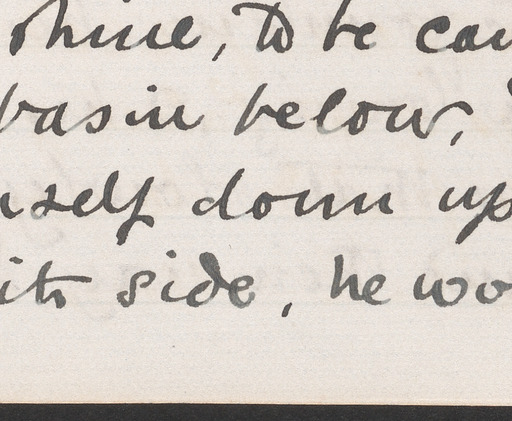 shine, to be cau
basin below,
nself down up
its side, he wo